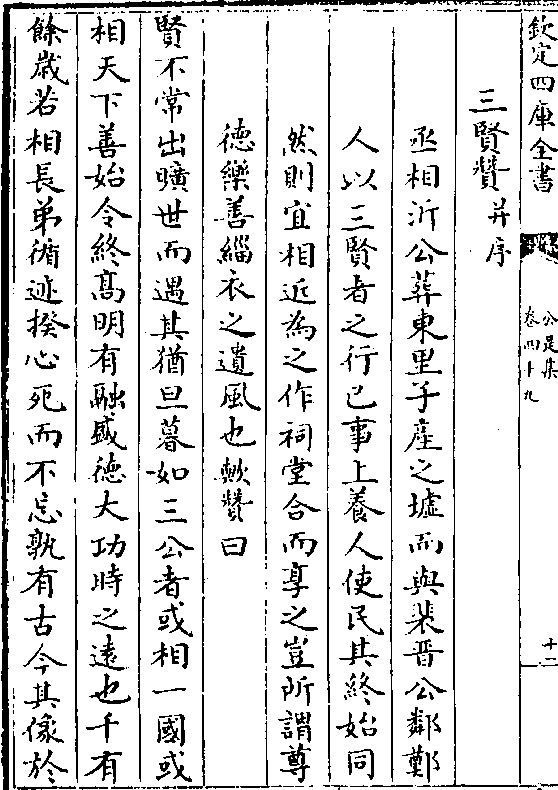 欽定四庫全書
公是集
卷四十九
十二
三賢贊并序
丞相沂公葬東里子產之墟而與裴晉公鄰鄭
人以三賢者之行己事上養人使民其終始同
然則宜相近為之作祠堂合而享之豈所謂尊
德樂善緇衣之遺風也歟贊曰
賢不常出曠世而遇其猶旦暮如三公者或相一國或
相天下善始令終髙明有融盛德大功時之逺也千有
餘歳若相長弟循迹揆心死而不忘孰有古今其像於